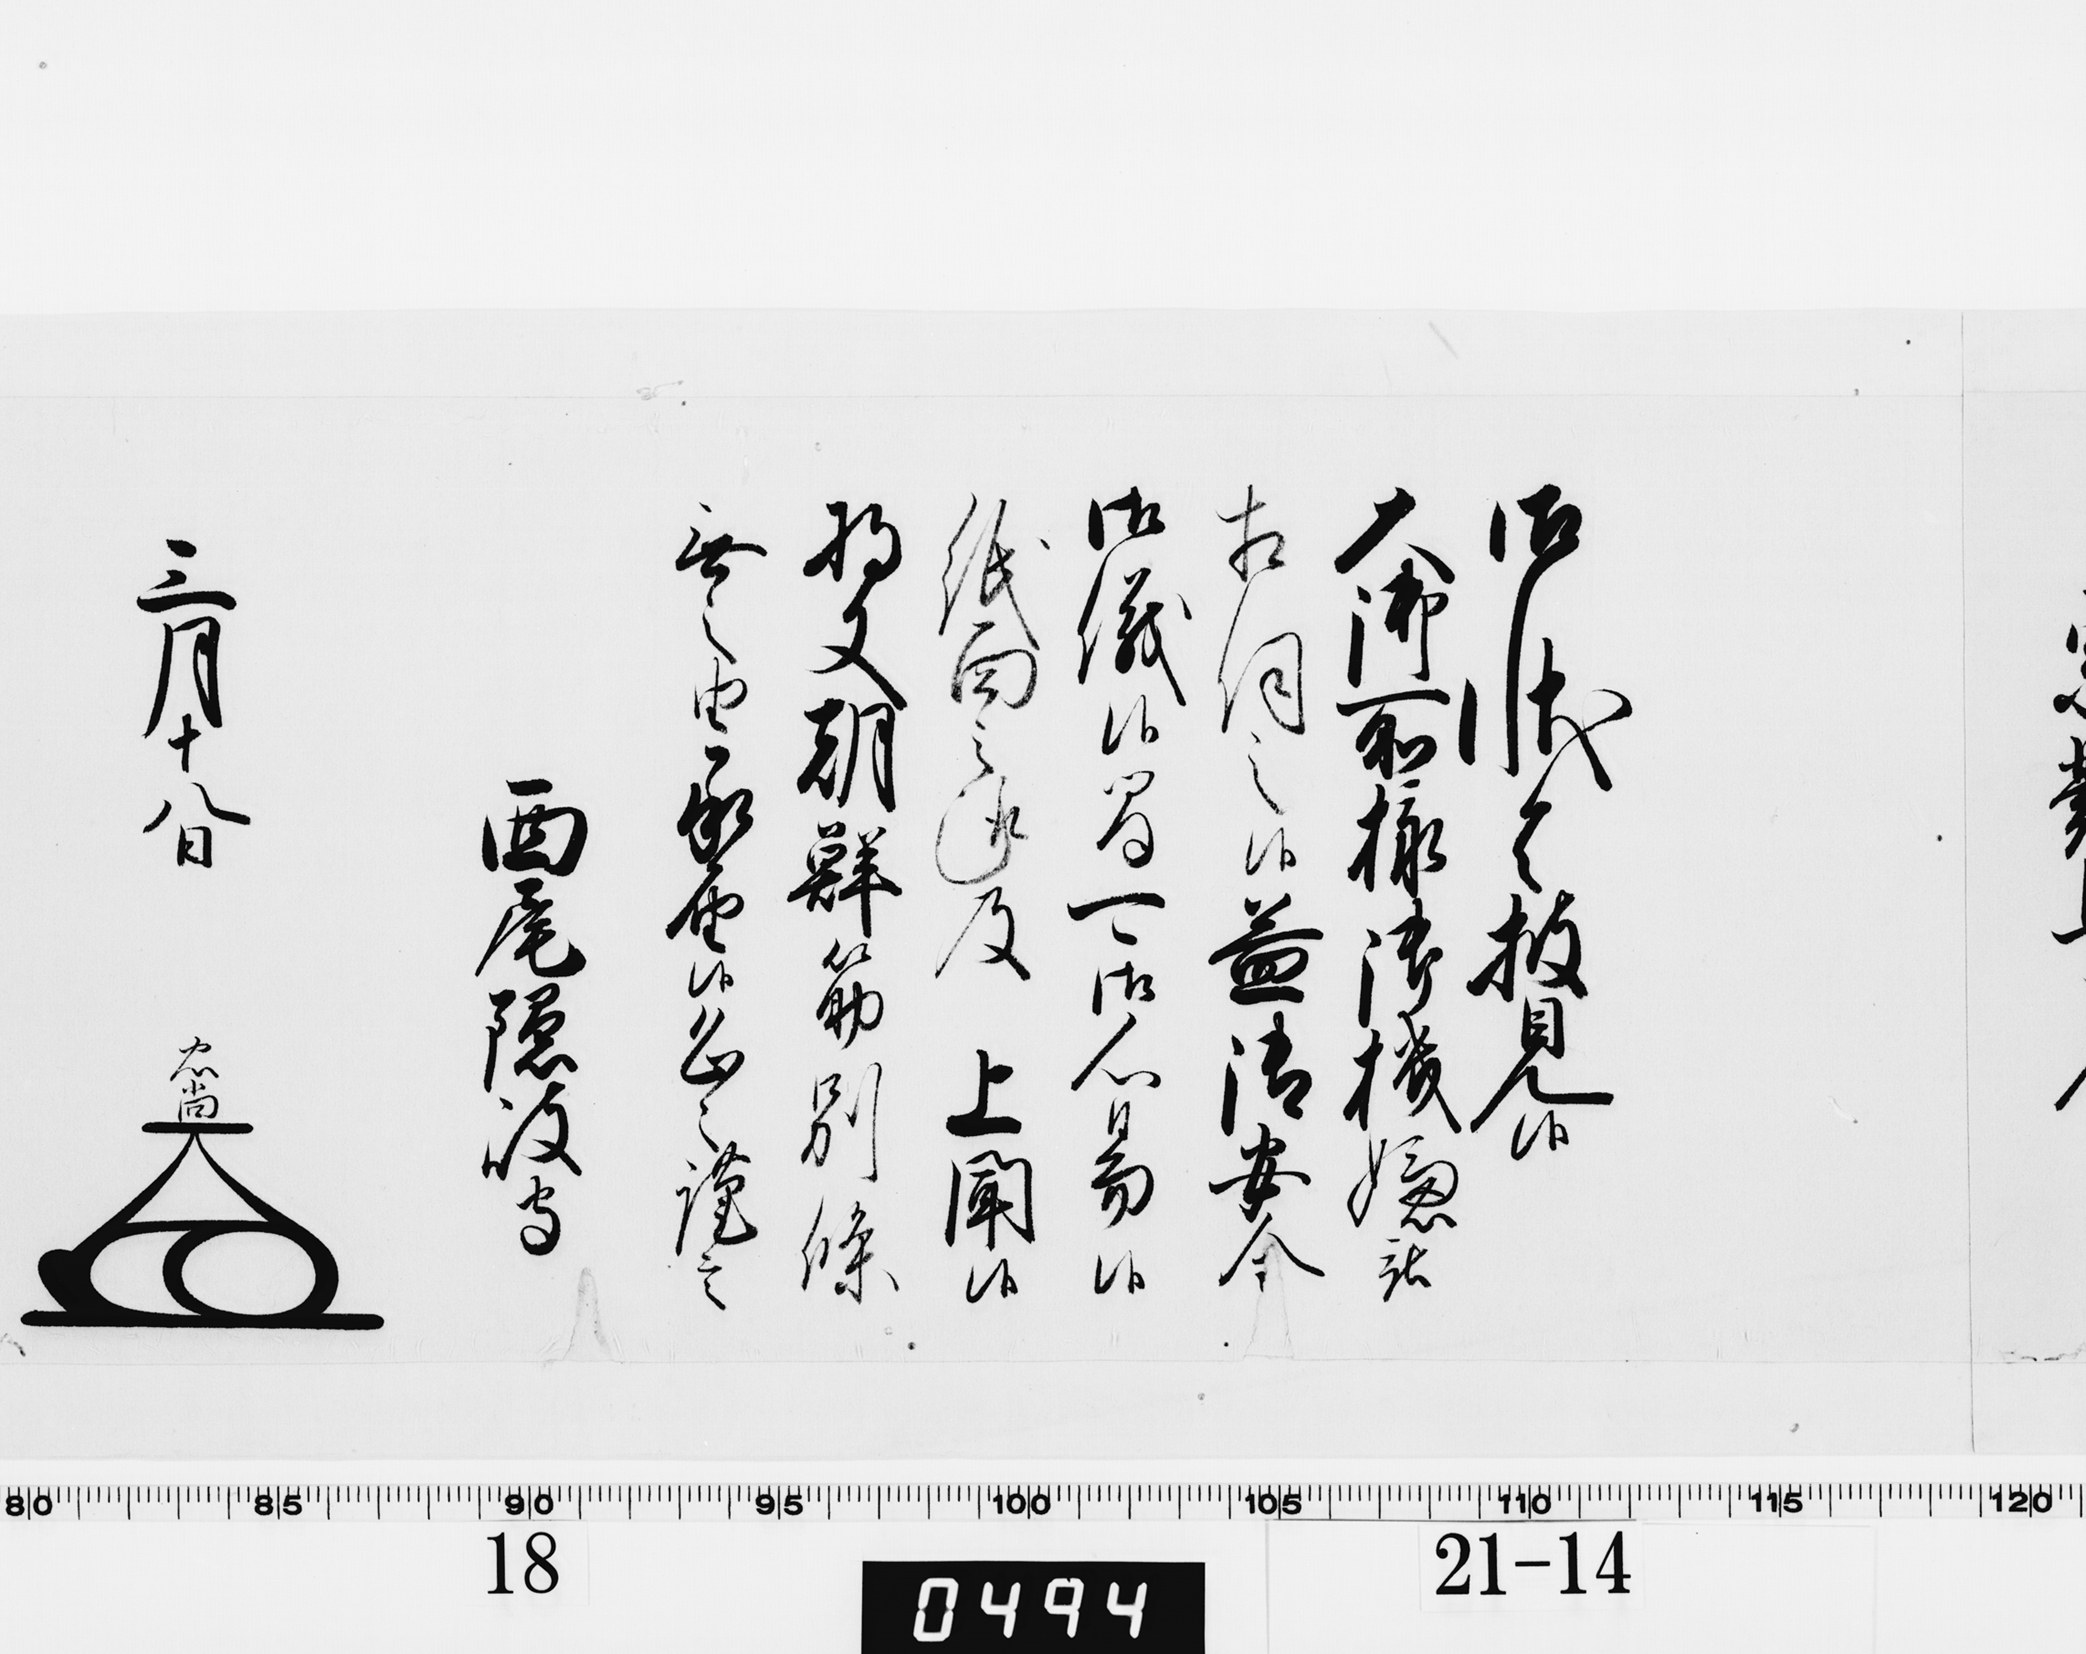 御状令披見候
大御所様御機嫌被
相伺之候益御安全
御儀候間可御心易候
紙面之趣及　上聞候
将又朝鮮筋別條
無之由承届候恐々謹言
西尾隠岐守
三月十八日　忠尚
80 85 90 95 100 105 110 115 120
18
0494
21-14